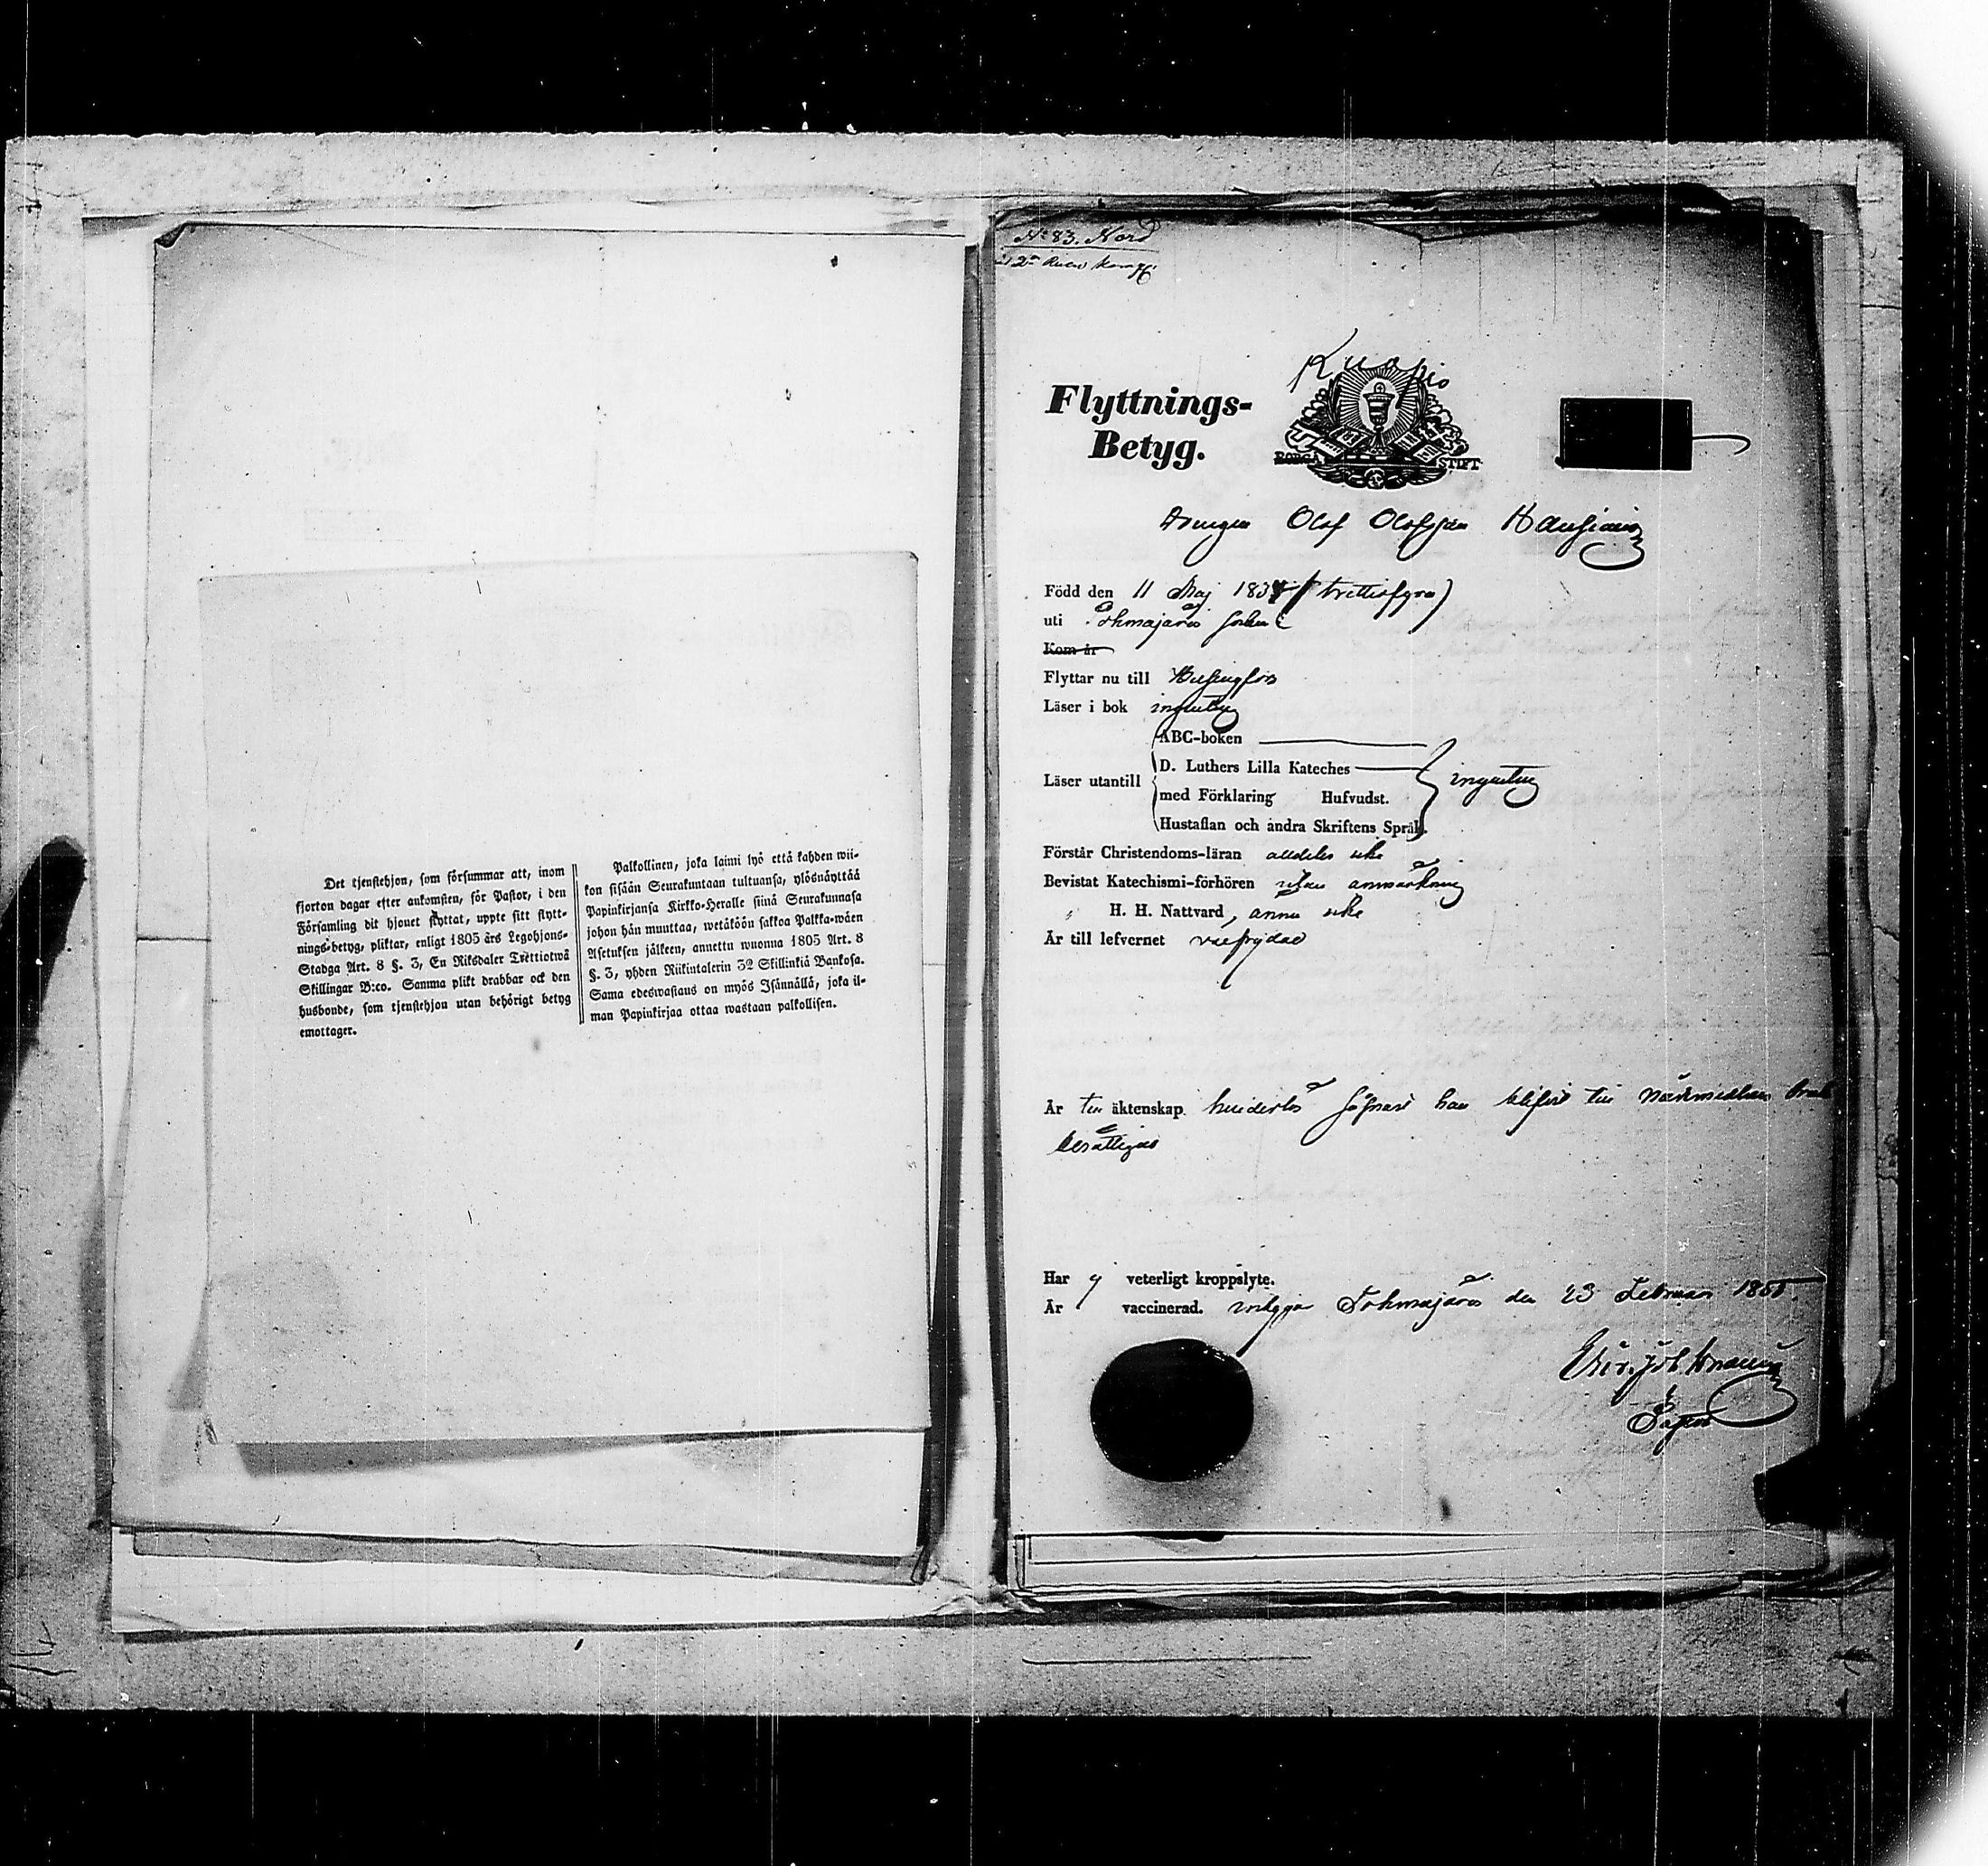 Det tjenstehjon, som försummar att, inom
fjorton dagar efter ankomsten, för Pastor, i den
Församling dit hjonet flyttat, uppte sitt flytt-
nings-betyg, pliktar, enligt 1805 års Legohjons-
Stadga Art. 8 §. 3, En Riksdaler Trettiotwå
Skillingar B:co. Samma plikt drabbar ock den
husbonde, som tjenstehjon utan behörigt betyg
emottager.
Palkollinen, joka laimi lyö että kahden wii-
kon sisään Seurakuntaan tultuansa, ylösnäyttää
Papinkirjansa Kirkko-Heralle siinä Seurakunnasa
johon hän muuttaa, wetäköön sakkoa Palkka-wäen
Asetuksen jälkeen, annettu wuonna 1805 Art. 8
§. 3, yhden Riikintalerin 32 Skillinkiä Bankosa.
Sama edeswastaus on myös Isännällä, joka il-
man Papinkirjaa ottaa wastaan palkollisen.
No 83. Nord
Kuopio
Flyttnings-
Betyg.
BORGÅ STIFT
Drengen Olof Olofsson
Född den 11 Maj 1834 (trettiofyra)
uti Tohmajärvi socken
Kom år
Flyttar nu till Helsingfors
Läser i bok ingenting
ABC-boken
D. Luthers Lilla Kateches
Läser utantill ingenting
med Förklaring Hufvudst.
Hustaflan och andra Skriftens Språk.
Förstår Christendoms-läran alldeles icke
Bevistat Katechismi-förhören utan anmärkning
" H. H. Nattvard, ännu icke
Är till lefvernet välfrejdad
Är till äktenskap hinderlös såframt han blifvit till Nattvardens bruk
berättigad
Har ej veterligt kroppslyte.
Är vaccinerad. intygar Tohmajärvi den 23 Februari 1855.